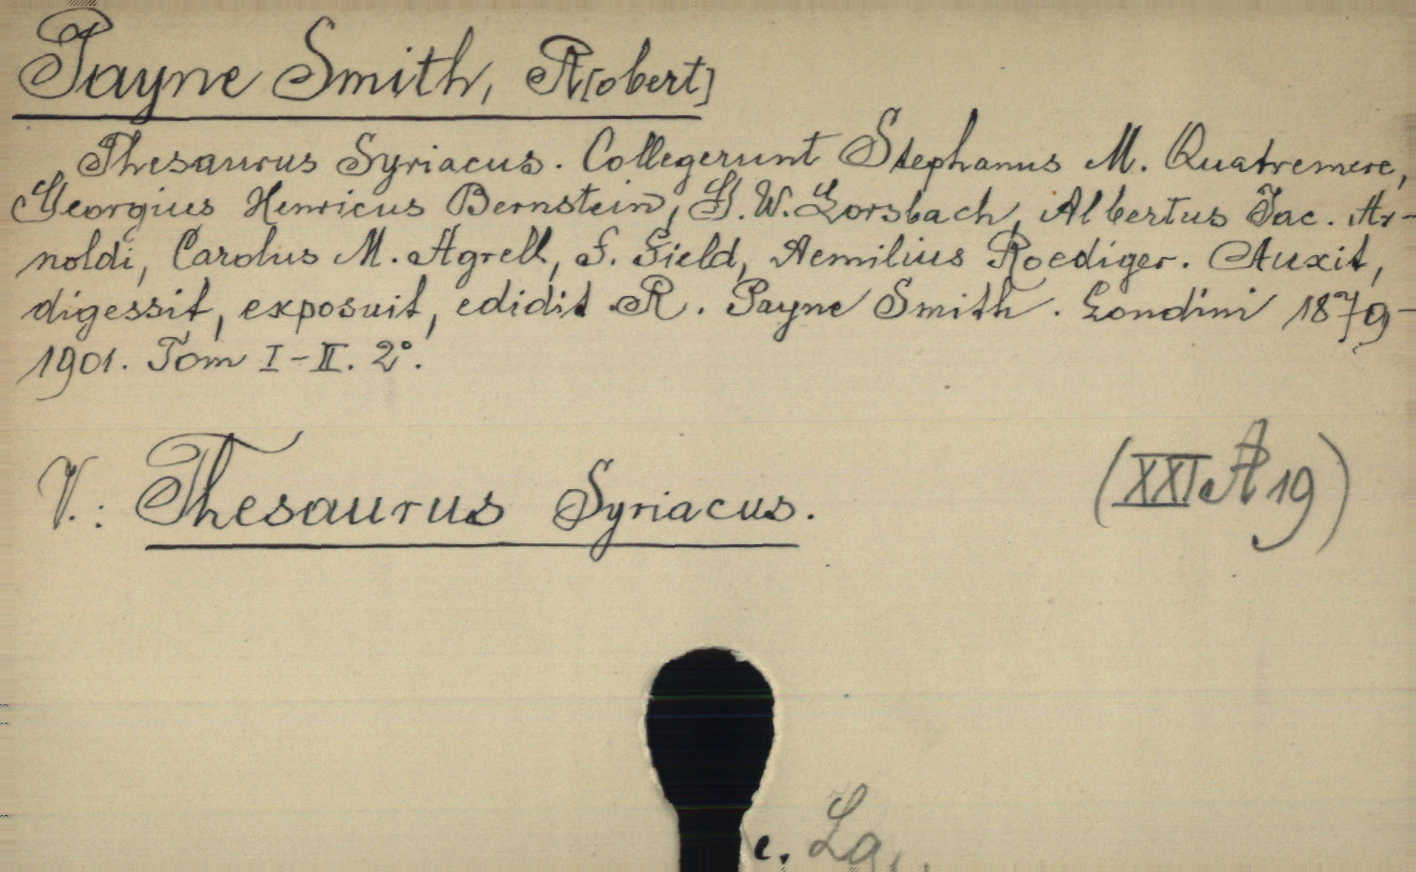 Payne Smith, R[obert]
Thesaurus Syriacus. Collegerunt Stephanus M. Quatremere,
Georgius Henricus Bernstein, G. W. Lorsbach, Albertus Jac. Ar-
noldi, Carolus M. Agrell, F. Field, Aemilius Roediger. Auxit,
digessit, exposuit, edidit R. Payne Smith. Londini 1879-
1901. Tom I-II. 2°.
V.: Thesaurus Syriacus.
(XXI A 19)